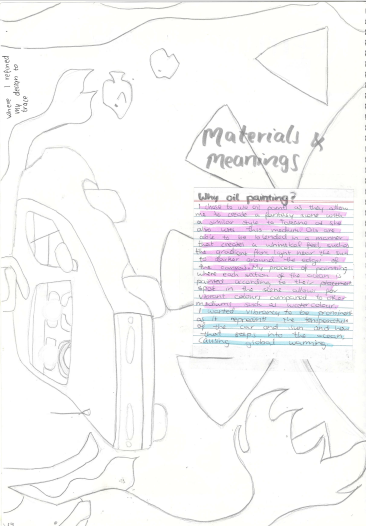 where I refined
my design to
trace
Materials &
Meanings
Why oil painting?
I chose to use oil paints as they allow
me to create a fantasy scene with
a similar style to
also uses this medium. Oils are
able to be blended in a manner
that creates a whimsical feel such as
the gradient from light near the sun
to darker around the edges of
the My process of painting
where each section of the ocean is
painted according to the
spot in the scene allows for
vibrant colours compared to other
mediums such as watercolour.
I wanted vibrancy to be prominent
as it represents the temperature
of the car and sun and how
that seeps into the ocean,
causing global warming.